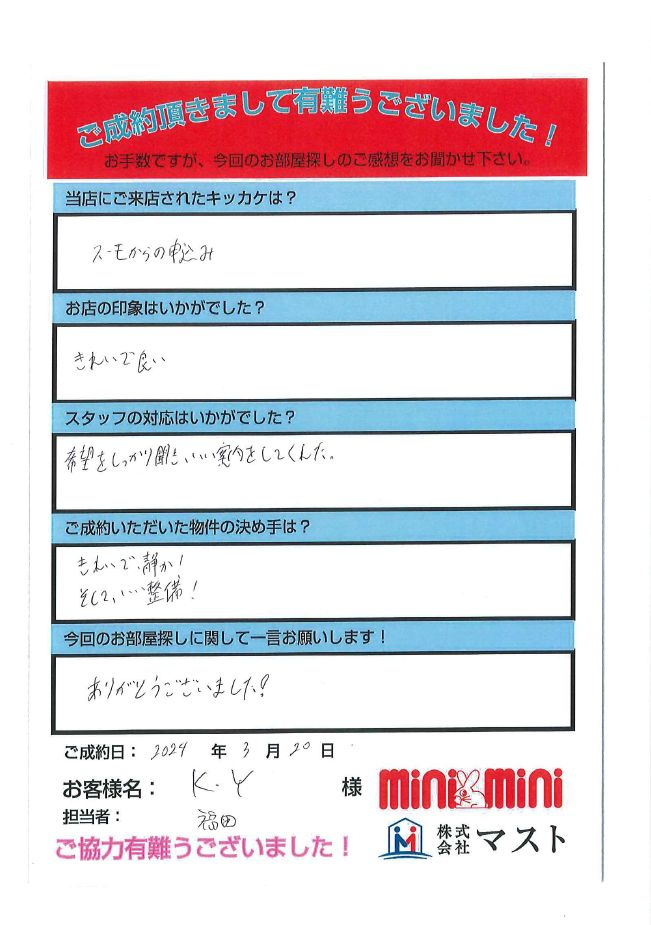 ご成約頂きまして有難うございました！
お手数ですが、今回のお部屋探しのご感想をお聞かせ下さい。
当店にご来店されたキッカケは？
スーモからの申込み
お店の印象はいかがでした？
きれいで良い
スタッフの対応はいかがでした？
希望をしっかり聞き、いい案内をしてくれた。
ご成約いただいた物件の決め手は？
きれいで、静か！
そして、いい整備！
今回のお部屋探しに関して一言お願いします！
ありがとうございました！
ご成約日： 2024 年 3 月 20 日
お客様名： K.Y 様
担当者： 福田
ご協力有難うございました！
mini mini
株式会社 マスト